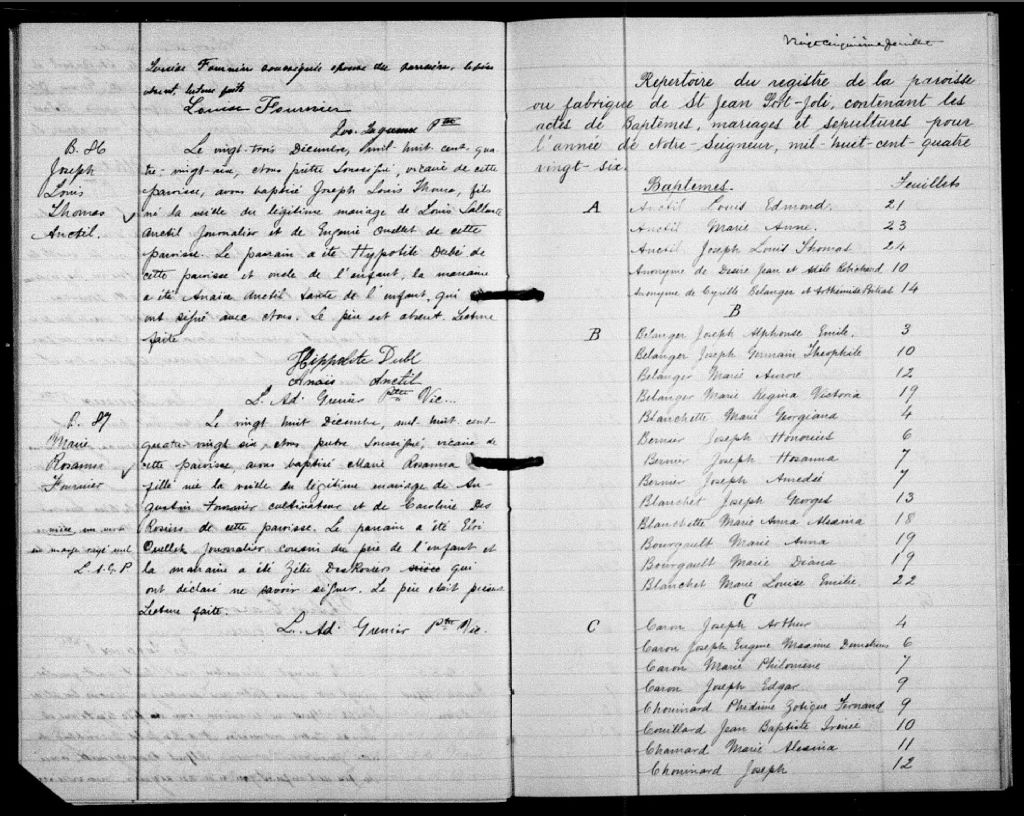 Louise Fournier soussignée épouse du parrain, 
Louise Fournier
Jos. Lagueux Ptre
B. 86
Joseph
Louis
Thomas
Anctil.
Le vingt-trois Décembre, mil-huit cent-qua-
tre-vingt-six, Nous prêtre Soussigné, vicaire de cette
paroisse, avons baptisé Joseph Louis Thomas, fils
né la veille du légitime mariage de Louis
Anctil Journalier et de Eugénie Ouellet de cette
paroisse. Le parrain a été Hypolite Dubé de
cette paroisse et oncle de l'enfant, la marraine
a été Anaïs Anctil tante de l'enfant, qui
ont signé avec Nous. Le père est absent. Lecture
faite
Hippolite Dubé
Anaïs Anctil
L. Ad. Grenier Ptre Vic.
B. 87
Marie
Rosanna
Fournier
Le vingt huit Décembre, mil-huit cent-
quatre vingt six, Nous prêtre Soussigné, vicaire de
cette paroisse, avons baptisé Marie Rosanna
fille née la veille du légitime mariage de Au-
gustin Fournier cultivateur et de Caroline Des
Rosiers de cette paroisse. Le parrain a été
Ouellet Journalier cousin du père de l'enfant et
la marraine a été Zélie DesRosiers qui
ont déclaré ne savoir signer. Le père était présent
Lecture faite.
un mot
en marge rayé nul
L. A. G. P.
L. Ad. Grenier Ptre Vic.
Vingt cinquième feuillet
Repertoire du registre de la paroisse
ou fabrique de St Jean Port-Joli, contenant les
actes de Baptêmes, mariages et sépultures pour
l'année de Notre-Seigneur, mil-huit-cent-quatre
vingt-six.
Baptêmes. Feuillets
A Anctil Louis Edmond. 21
Anctil Marie Anne. 23
Anctil Joseph Louis Thomas 24
Anonyme de Désiré Jean et Adèle Robichaud 10
Anonyme de Cyrille Bélanger et Arthémise 14
B
B Bélanger Joseph Alphonse Emile. 3
Bélanger Joseph Germain Théophile 10
Bélanger Marie Aurore 12
Bélanger Marie Regina Victoria 19
Blanchette Marie Georgiana 4
Bernier Joseph Honorius 6
Bernier Joseph Hosanna 7
Bernier Joseph Amedée 7
Blanchet Joseph Georges 13
Blanchette Marie Anna Alxama 18
Bourgault Marie Anna 19
Bourgault Marie Diana 19
Blanchet Marie Louise Emilie 22
C
C Caron Joseph Arthur 4
Caron Joseph Eugène Maxime Demetrius 6
Caron Marie Philomène 7
Caron Joseph Edgar 9
Chouinard Phidime Zotique Fernand 9
Couillard Jean Baptiste Irénée 10
Chamard Marie Alexina 11
Chouinard Joseph 12